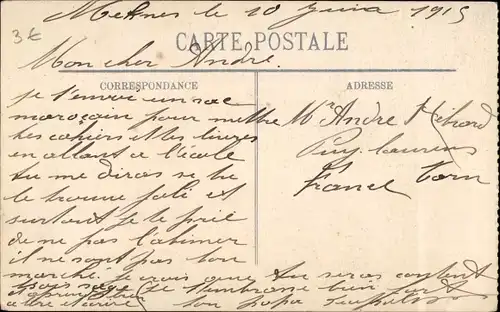 3€
Meknes le 10 Juin 1915
CARTE POSTALE
Mon cher André.
CORRESPONDANCE
je t'envoi un sac
marocain pour mettre
tes cahiers et tes livres
en allant a l'école
tu me diras si tu
le trouve joli et
surtout je te prie
de ne pas l'abimer
il ne sont pas bon
marché. Je crois que tu seras content
sois sage je t'embrasse bien fort
et apprend bien
a lire et ecrire ton papa
ADRESSE
Mr André Hébard
Puylaurens
Tarn
France